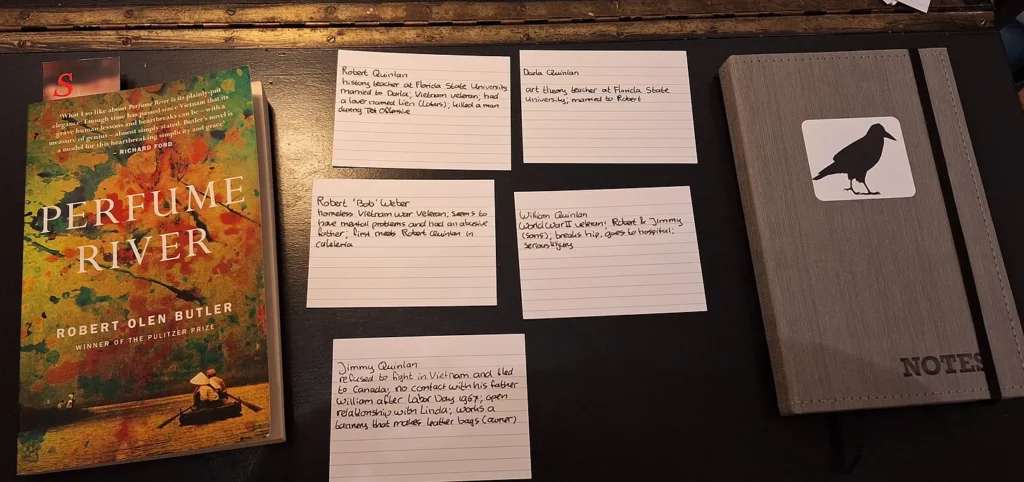 S
"What I so like about Perfume River is its plainly-put
elegance. Enough time has passed since Vietnam that its
grave human lessons and heartbreaks can be – with a
measure of genius – almost simply stated. Butler's novel is
a model for this heartbreaking simplicity and grace"
– RICHARD FORD
PERFUME
RIVER
ROBERT OLEN BUTLER
WINNER OF THE PULITZER PRIZE
Robert Quinlan
history teacher at Florida State University
married to Darla; Vietnam veteran; had
a lover named Lien (Lotus); killed a man
during Tet Offensive
Darla Quinlan
art theory teacher at Florida State
University; married to Robert
Robert 'Bob' Weber
homeless Vietnam war veteran; seems to
have mental problems and had an abusive
father; first meets Robert Quinlan in
cafeteria
William Quinlan
World War II veteran; Robert & Jimmy
(sons); breaks hip, goes to hospital;
serious injury
Jimmy Quinlan
refused to fight in Vietnam and fled
to Canada; no contact with his father
William after Labor Day 1967; open
relationship with Linda; works a
tannery that makes leather bags (owner)
NOTES